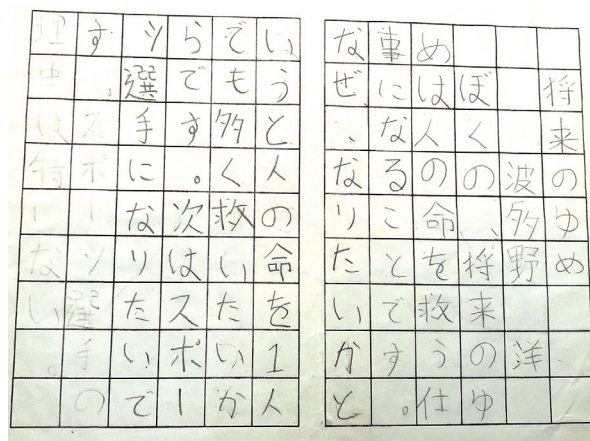 将来のゆめ
波多野 洋
ぼくの、将来のゆ
めは人の命を救う仕
事になることです。
なぜ、なりたいかと
いうと人の命を1人
でも多く救いたいか
らです。次はスポー
ツ選手になりたいで
す。スポーツ選手の
理由は特にない。